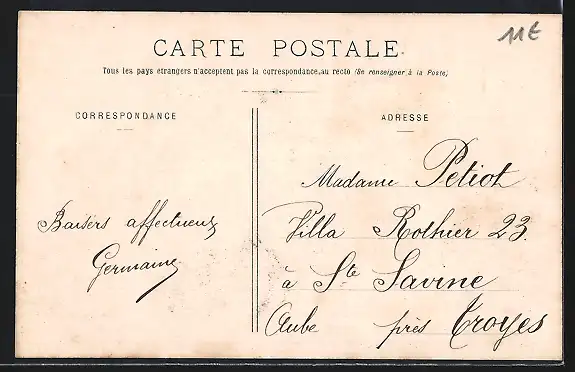 11€
CARTE POSTALE
Tous les pays étrangers n'acceptent pas la correspondance au recto (Se renseigner à la Poste)
CORRESPONDANCE
Baisers affectueux
Germaine
ADRESSE
Madame Petiot
Villa Rothier 23.
à Ste Savine
Aube près Troyes